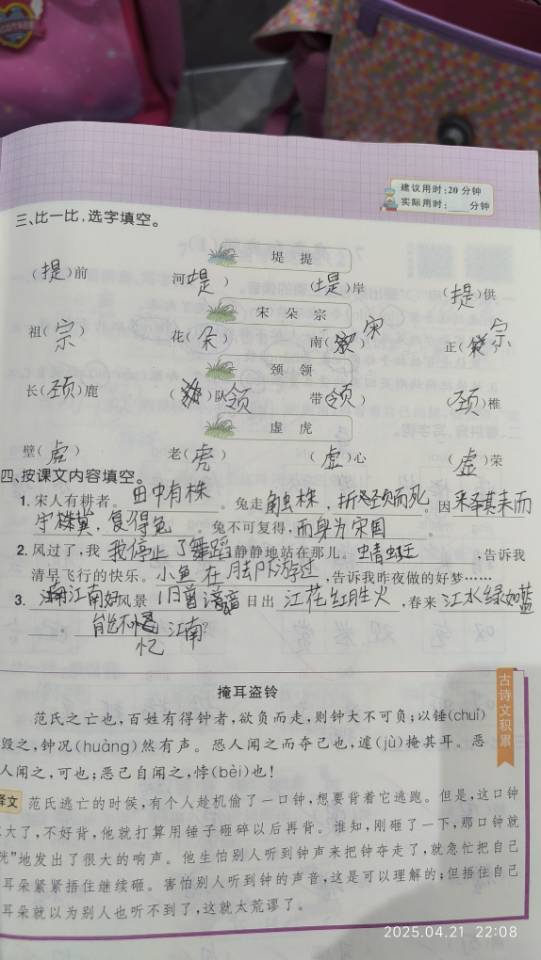 建议用时:20 分钟
实际用时:____分钟
三、比一比,选字填空。
堤 提
(提)前 河(堤) (堤)岸 (提)供
宋 朵 宗
祖(宗) 花(朵) 南(宋) 正(宗)
颈 领
长(颈)鹿 (领)队 带(领) (颈)椎
虚 虎
壁(虎) 老(虎) (虚)心 (虚)荣
四、按课文内容填空。
1. 宋人有耕者。田中有株。兔走触株,折颈而死。因释其耒而
守株冀,复得兔。兔不可复得,而身为宋国
2. 风过了,我我停止了舞蹈静静地站在那儿。蜻蜓,告诉我
清早飞行的快乐。小鱼在脚下游过,告诉我昨夜做的好梦……
3. 江南好风景旧曾谙日出江花红胜火,春来江水绿如蓝
能不忆江南?
掩耳盗铃
古诗文积累
范氏之亡也,百姓有得钟者,欲负而走,则钟大不可负;以锤(chuí)
毁之,钟况(huàng)然有声。恐人闻之而夺己也,遽(jù)掩其耳。恶
人闻之,可也;恶己自闻之,悖(bèi)也!
译文 范氏逃亡的时候,有个人趁机偷了一口钟,想要背着它逃跑。但是,这口钟
大了,不好背,他就打算用锤子砸碎以后再背。谁知,刚砸了一下,那口钟就
”地发出了很大的响声。他生怕别人听到钟声来把钟夺走了,就急忙把自己
耳朵紧紧捂住继续砸。害怕别人听到钟的声音,这是可以理解的;但捂住自己
耳朵就以为别人也听不到了,这就太荒谬了。
2025.04.21 22:08